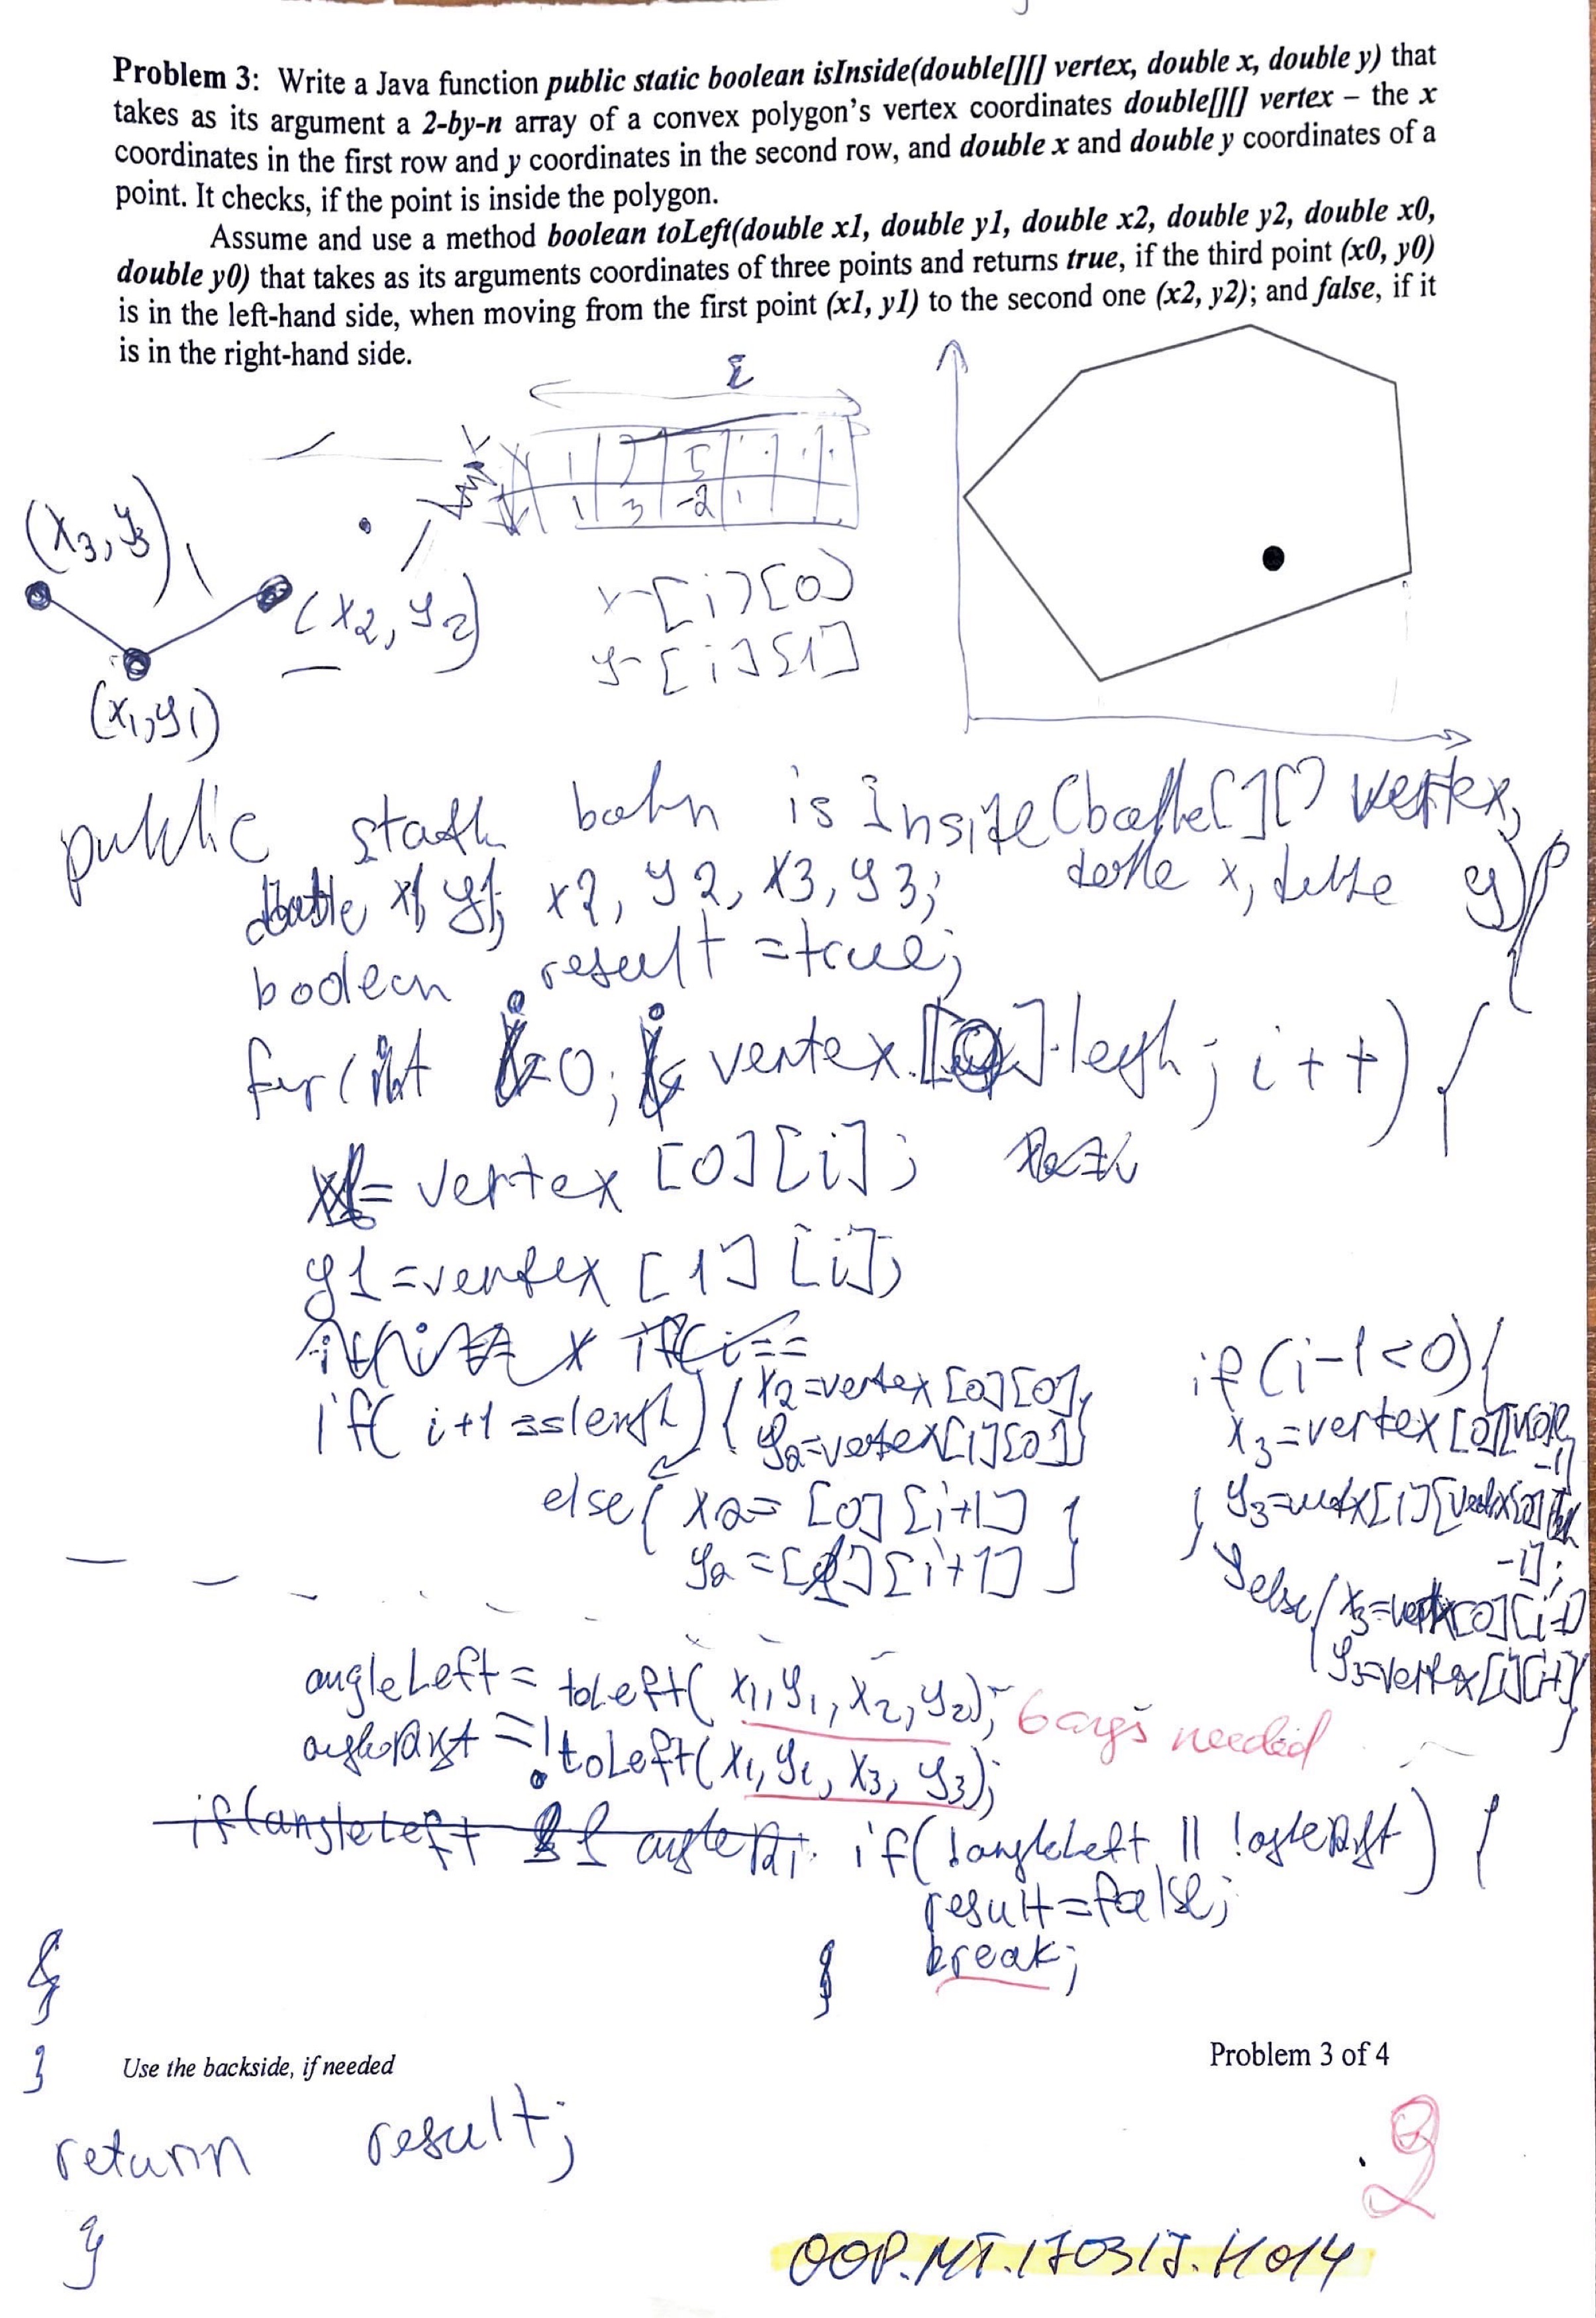 Problem 3: Write a Java function public static boolean isInside(double[][] vertex, double x, double y) that
takes as its argument a 2-by-n array of a convex polygon's vertex coordinates double[][] vertex – the x
coordinates in the first row and y coordinates in the second row, and double x and double y coordinates of a
point. It checks, if the point is inside the polygon.
Assume and use a method boolean toLeft(double x1, double y1, double x2, double y2, double x0,
double y0) that takes as its arguments coordinates of three points and returns true, if the third point (x0, y0)
is in the left-hand side, when moving from the first point (x1, y1) to the second one (x2, y2); and false, if it
is in the right-hand side.
i
1 7 5
1 3 -2 1
(x3, y3)
(x2, y2)
(x1, y1)
x-[i][0]
y-[i][1]
public is Inside( [][] vertex,
x, y) {
x1, y1, x2, y2, x3, y3;
boolean result = true;
for(int i=0; i< vertex.[0].length; i++) {
x1= vertex [0][i];
y1=vertex [1][i];
if( i+1 == length) { x2=vertex[0][0],
y2=vertex[1][0]}
else{ x2= [0][i+1]
y2=[1][i+1] }
if(i-1<0){
x3=vertex[0][
-1]
y3=
-1];
}else{ x3=vertex[0][i-1]
y3=vertex[1][i-1]}
angleLeft = toLeft( x1, y1, x2, y2);
6 args needed
angleRight = !toLeft(x1, y1, x3, y3);
if(angleLeft
if( !angleLeft || !angleRight) {
result=false;
break;
}
}
}
Use the backside, if needed
Problem 3 of 4
return result;
}
2
OOP.MT.170317.H014